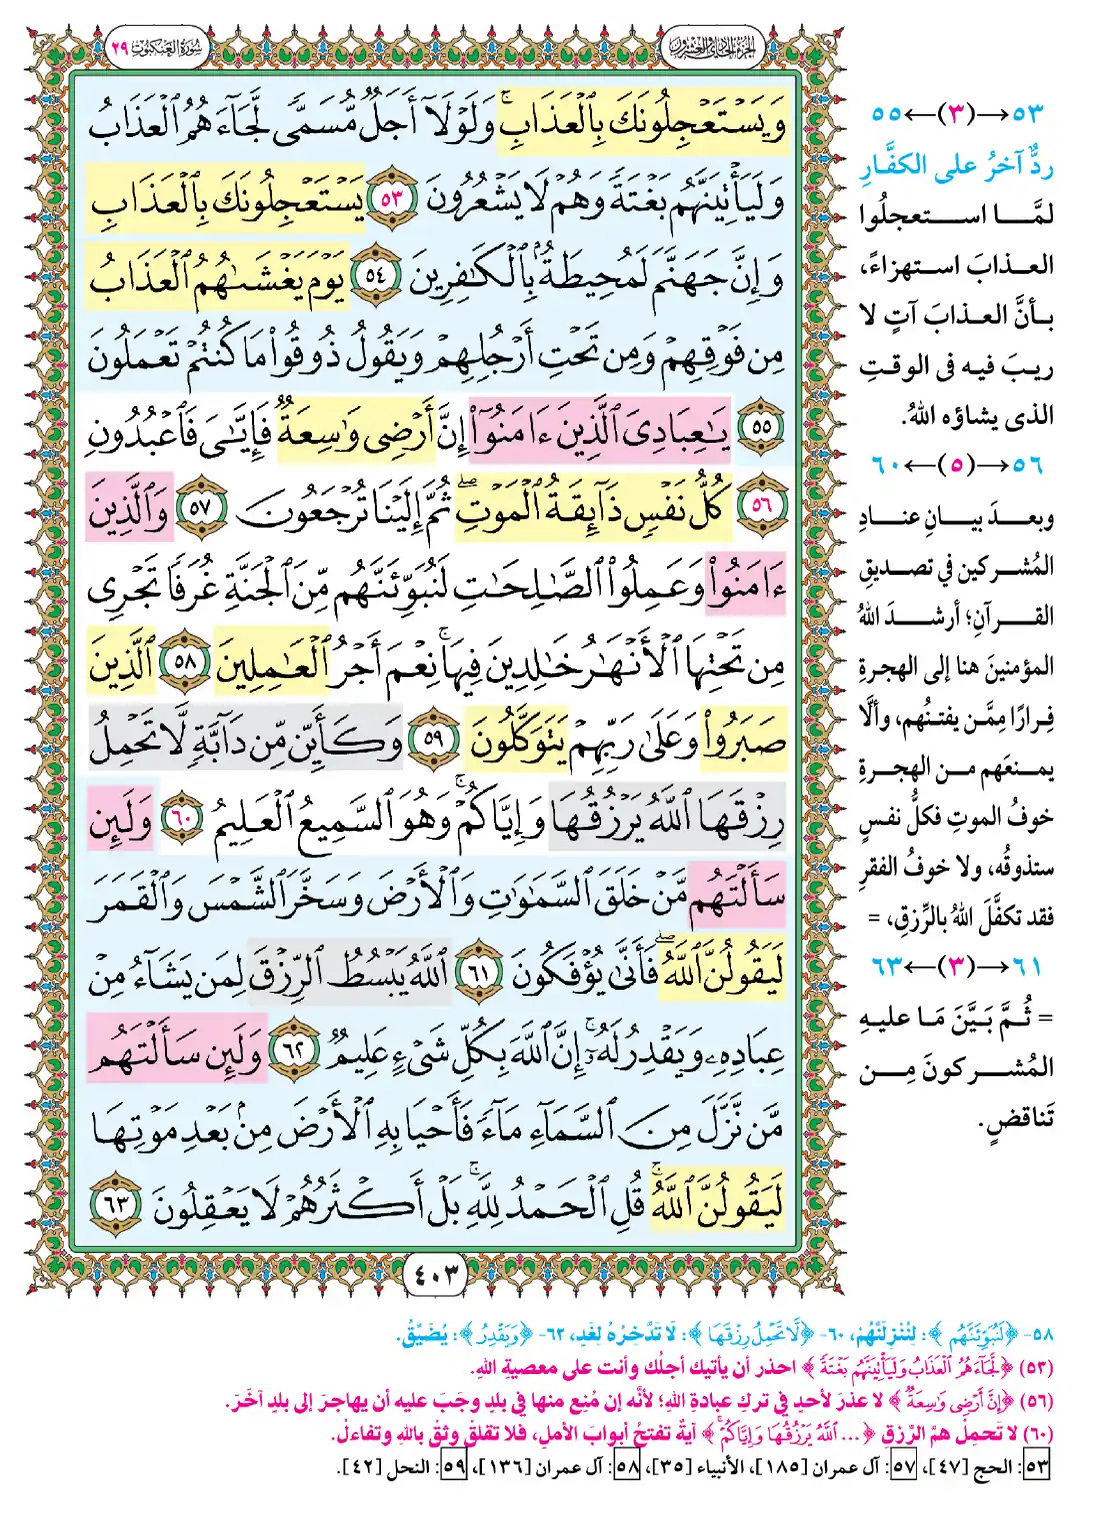 الجزء الحادي والعشرون
سورة العنكبوت ٢٩
وَيَسْتَعْجِلُونَكَ بِالْعَذَابِ ۚ وَلَوْلَا أَجَلٌ مُّسَمًّى لَّجَاءَهُمُ الْعَذَابُ
وَلَيَأْتِيَنَّهُم بَغْتَةً وَهُمْ لَا يَشْعُرُونَ ٥٣ يَسْتَعْجِلُونَكَ بِالْعَذَابِ
وَإِنَّ جَهَنَّمَ لَمُحِيطَةٌ بِالْكَافِرِينَ ٥٤ يَوْمَ يَغْشَاهُمُ الْعَذَابُ
مِن فَوْقِهِمْ وَمِن تَحْتِ أَرْجُلِهِمْ وَيَقُولُ ذُوقُوا مَا كُنتُمْ تَعْمَلُونَ
٥٥ يَا عِبَادِيَ الَّذِينَ ءَامَنُوا إِنَّ أَرْضِي وَاسِعَةٌ فَإِيَّايَ فَاعْبُدُونِ
٥٦ كُلُّ نَفْسٍ ذَائِقَةُ الْمَوْتِ ۖ ثُمَّ إِلَيْنَا تُرْجَعُونَ ٥٧ وَالَّذِينَ
ءَامَنُوا وَعَمِلُوا الصَّالِحَاتِ لَنُبَوِّئَنَّهُم مِّنَ الْجَنَّةِ غُرَفًا تَجْرِي
مِن تَحْتِهَا الْأَنْهَارُ خَالِدِينَ فِيهَا ۚ نِعْمَ أَجْرُ الْعَامِلِينَ ٥٨ الَّذِينَ
صَبَرُوا وَعَلَىٰ رَبِّهِمْ يَتَوَكَّلُونَ ٥٩ وَكَأَيِّن مِّن دَابَّةٍ لَّا تَحْمِلُ
رِزْقَهَا اللَّهُ يَرْزُقُهَا وَإِيَّاكُمْ ۚ وَهُوَ السَّمِيعُ الْعَلِيمُ ٦٠ وَلَئِن
سَأَلْتَهُم مَّنْ خَلَقَ السَّمَاوَاتِ وَالْأَرْضَ وَسَخَّرَ الشَّمْسَ وَالْقَمَرَ
لَيَقُولُنَّ اللَّهُ ۖ فَأَنَّىٰ يُؤْفَكُونَ ٦١ اللَّهُ يَبْسُطُ الرِّزْقَ لِمَن يَشَاءُ مِنْ
عِبَادِهِ وَيَقْدِرُ لَهُ ۚ إِنَّ اللَّهَ بِكُلِّ شَيْءٍ عَلِيمٌ ٦٢ وَلَئِن سَأَلْتَهُم
مَّن نَّزَّلَ مِنَ السَّمَاءِ مَاءً فَأَحْيَا بِهِ الْأَرْضَ مِن بَعْدِ مَوْتِهَا
لَيَقُولُنَّ اللَّهُ ۚ قُلِ الْحَمْدُ لِلَّهِ ۚ بَلْ أَكْثَرُهُمْ لَا يَعْقِلُونَ ٦٣
٤٠٣
٥٣→(٣)←٥٥
ردٌّ آخرُ على الكفَّارِ
لمَّا استعجلُوا
العذابَ استهزاءً،
بأنَّ العذابَ آتٍ لا
ريبَ فيه في الوقتِ
الذى يشاؤه اللهُ.
٥٦→(٥)←٦٠
وبعدَ بيانِ عنادِ
المُشركين في تصديقِ
القرآنِ؛ أرشدَ اللهُ
المؤمنينَ هنا إلى الهجرةِ
فِرارًا مِمَّن يفتنُهم، وألَّا
يمنعَهم من الهجرةِ
خوفُ الموتِ فكلُّ نفسٍ
ستذوقُه، ولا خوفُ الفقرِ
فقد تكفَّلَ اللهُ بالرِّزقِ، =
٦١→(٣)←٦٣
= ثُمَّ بَيَّنَ مَا عليهِ
المُشركونَ مِن
تَناقضٍ.
٥٨- ﴿لَنُبَوِّئَنَّهُم﴾: لنُنْزِلَنَّهُمْ، ٦٠- ﴿لَّا تَحْمِلُ رِزْقَهَا﴾: لَا تَدَّخِرُهُ لِغَدٍ، ٦٢- ﴿وَيَقْدِرُ﴾: يُضَيِّقُ.
(٥٣) ﴿لَّجَاءَهُمُ الْعَذَابُ وَلَيَأْتِيَنَّهُم بَغْتَةً﴾ احذر أن يأتيك أجلُك وأنت على معصيةِ اللهِ.
(٥٦) ﴿إِنَّ أَرْضِي وَاسِعَةٌ﴾ لا عذرَ لأحدٍ في تركِ عبادةِ اللهِ؛ لأنَّه إن مُنِع منها في بلدٍ وجَبَ عليه أن يهاجرَ إلى بلدٍ آخَرَ.
(٦٠) لا تَحمِلْ همَّ الرِّزقِ ﴿... اللَّهُ يَرْزُقُهَا وَإِيَّاكُمْ ۚ﴾ آيةٌ تفتحُ أبوابَ الأملِ، فلا تقلقْ وثقْ باللهِ وتفاءلْ.
٥٣: الحج [٤٧]، ٥٧: آل عمران [١٨٥]، الأنبياء [٣٥]، ٥٨: آل عمران [١٣٦]، ٥٩: النحل [٤٢].